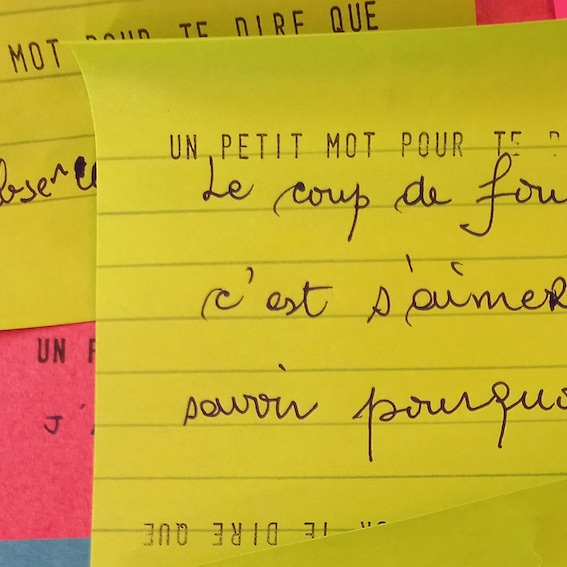 MOT POUR TE DIRE QUE
UN PETIT MOT POUR TE
Le coup de fou
c'est s'aimer
savoir pourquo
UN P
J'
TE DIRE QUE